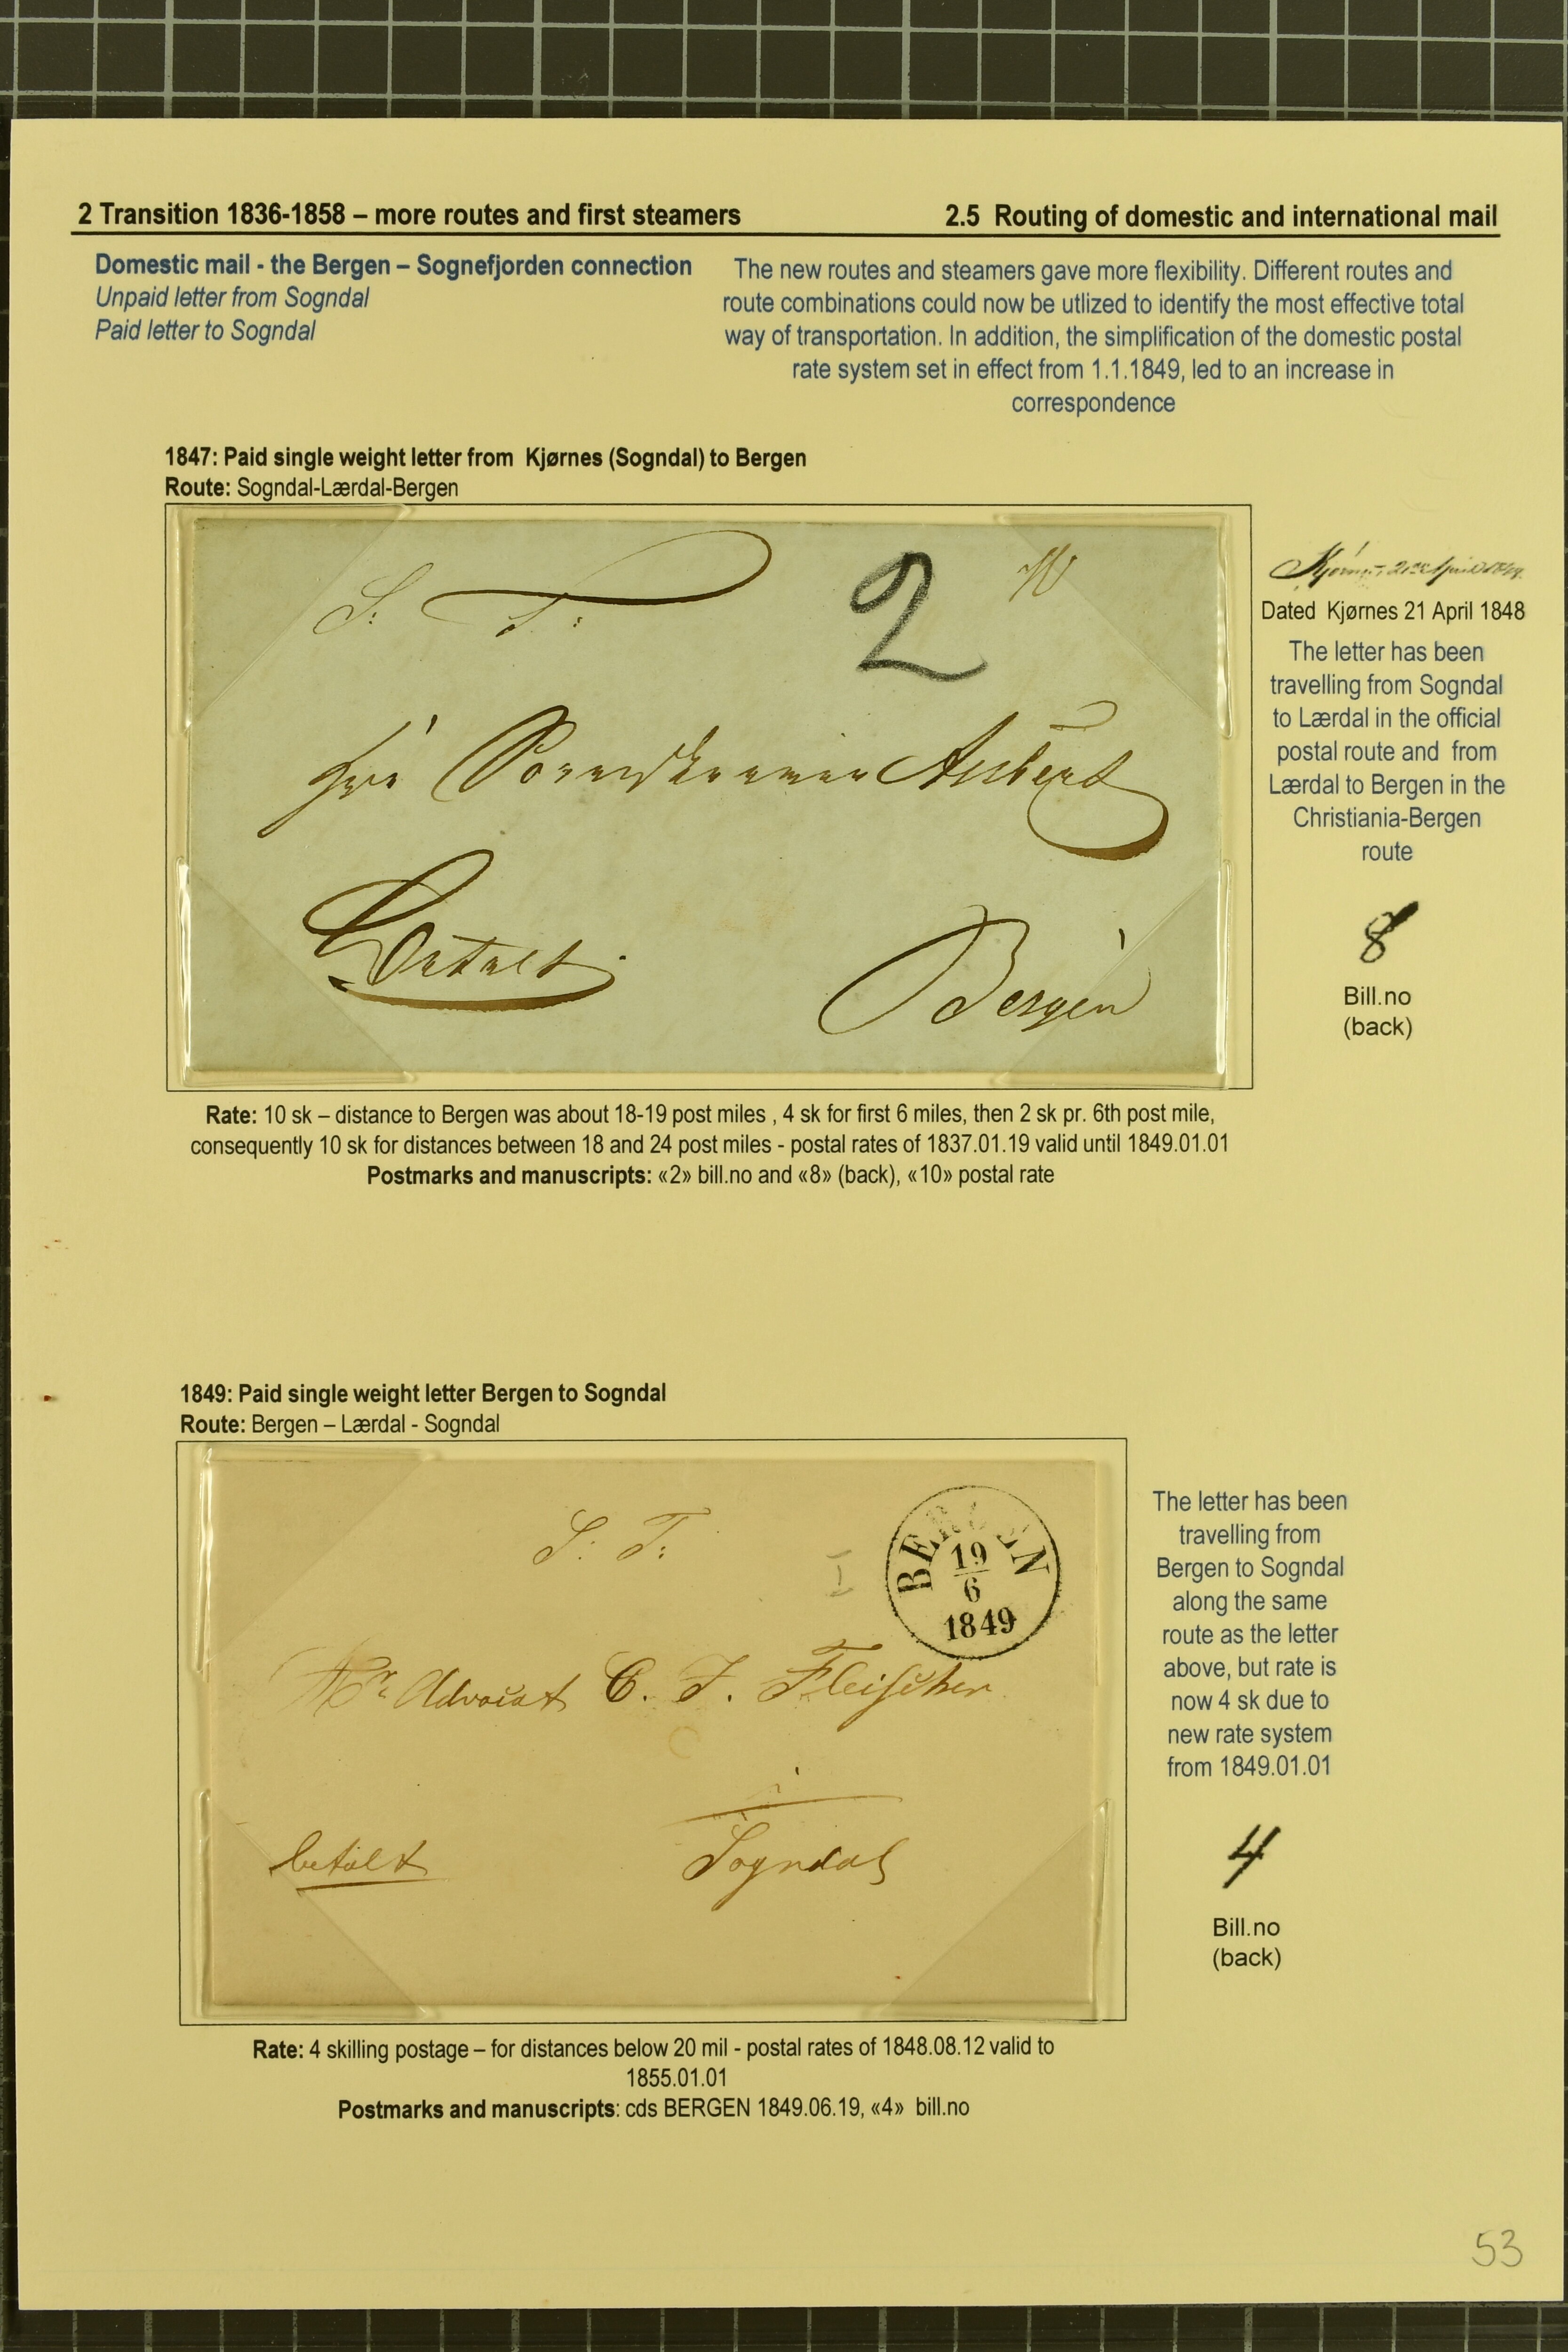 2 Transition 1836-1858 – more routes and first steamers
2.5 Routing of domestic and international mail
Domestic mail - the Bergen – Sognefjorden connection
Unpaid letter from Sogndal
Paid letter to Sogndal
The new routes and steamers gave more flexibility. Different routes and
route combinations could now be utlized to identify the most effective total
way of transportation. In addition, the simplification of the domestic postal
rate system set in effect from 1.1.1849, led to an increase in
correspondence
1847: Paid single weight letter from Kjørnes (Sogndal) to Bergen
Route: Sogndal-Lærdal-Bergen
S: T:
2
10
Aubert
Betalt
Bergen
Dated Kjørnes 21 April 1848
The letter has been
travelling from Sogndal
to Lærdal in the official
postal route and from
Lærdal to Bergen in the
Christiania-Bergen
route
8
Bill.no
(back)
Rate: 10 sk – distance to Bergen was about 18-19 post miles , 4 sk for first 6 miles, then 2 sk pr. 6th post mile,
consequently 10 sk for distances between 18 and 24 post miles - postal rates of 1837.01.19 valid until 1849.01.01
Postmarks and manuscripts: «2» bill.no and «8» (back), «10» postal rate
1849: Paid single weight letter Bergen to Sogndal
Route: Bergen – Lærdal - Sogndal
S: T:
BERGEN
19
6
1849
Hr. Advocat C. J. Fleischer
betalt
Sogndal
The letter has been
travelling from
Bergen to Sogndal
along the same
route as the letter
above, but rate is
now 4 sk due to
new rate system
from 1849.01.01
4
Bill.no
(back)
Rate: 4 skilling postage – for distances below 20 mil - postal rates of 1848.08.12 valid to
1855.01.01
Postmarks and manuscripts: cds BERGEN 1849.06.19, «4» bill.no
53